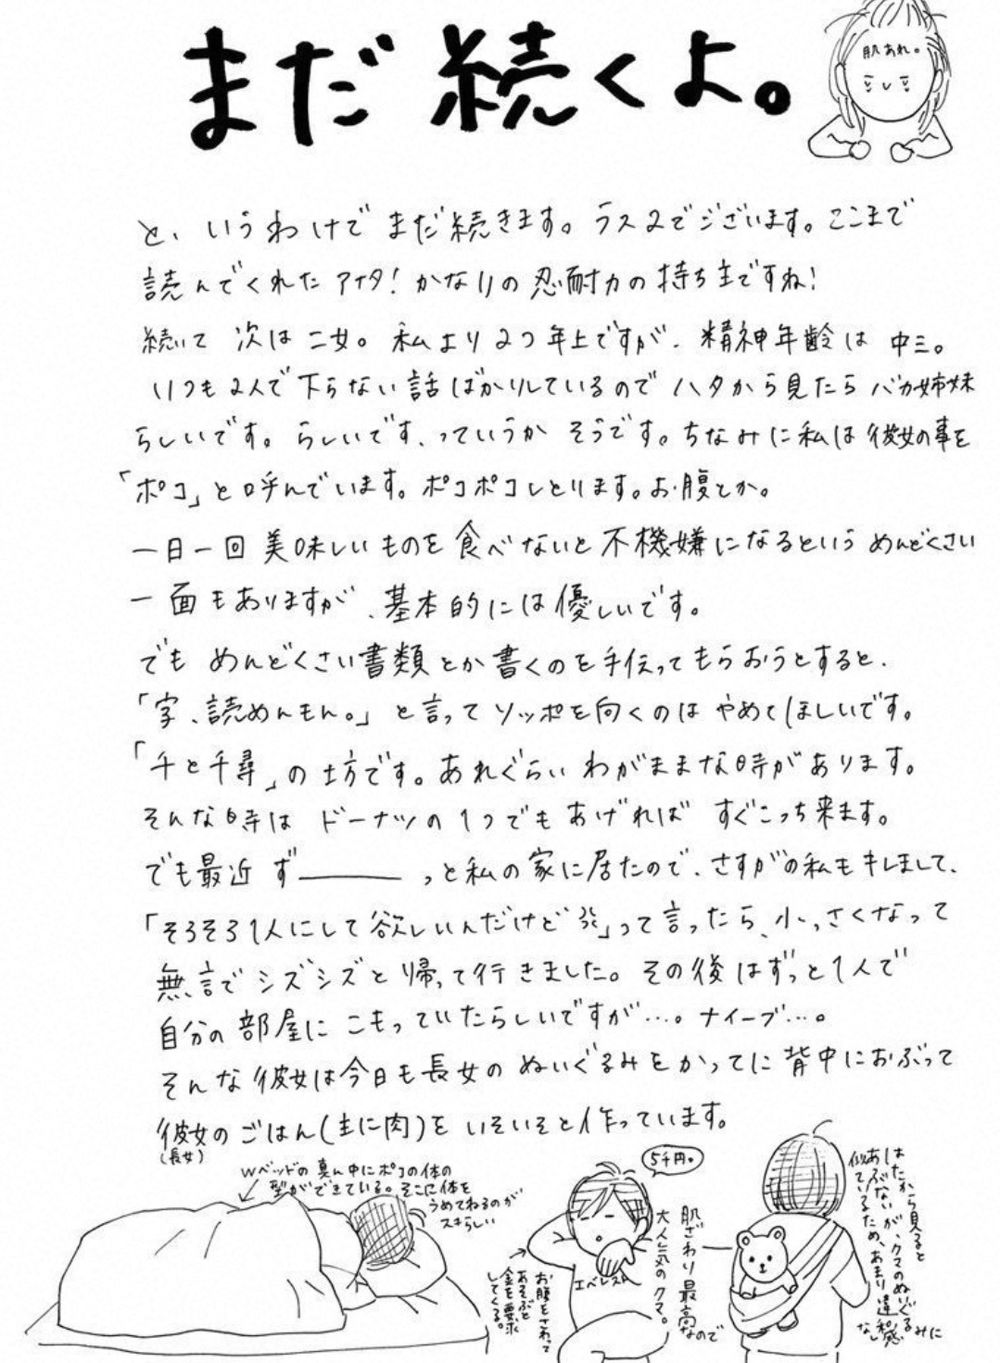 まだ続くよ。
肌あれ。
と、いうわけでまだ続きます。ラス2でございます。ここまで
読んでくれたアナタ!かなりの忍耐力の持ち主ですね!
続いて次は二女。私より2つ年上ですが、精神年齢は中三。
いつも2人で下らない話ばかりしているのでハタから見たらバカ姉妹
らしいです。らしいです、っていうかそうです。ちなみに私は彼女の事を
「ポコ」と呼んでいます。ポコポコしとります。お腹とか。
一日一回美味しいものを食べないと不機嫌になるというめんどくさい
一面もありますが、基本的には優しいです。
でもめんどくさい書類とか書くのを手伝ってもらおうとすると、
「字、読めんもん。」と言ってソッポを向くのはやめてほしいです。
「千と千尋」の坊です。あれぐらいわがままな時があります。
そんな時はドーナツの1つでもあげればすぐこっち来ます。
でも最近ず———っと私の家に居たので、さすがの私もキレまして、
「そろそろ1人にして欲しいんだけど」って言ったら、小っさくなって
無言でシズシズと帰って行きました。その後はずっと1人で
自分の部屋にこもっていたらしいですが…。ナイーブ…。
そんな彼女は今日も長女のぬいぐるみをかってに背中におぶって
彼女のごはん(主に肉)をいそいそと作っています。
(長女)
Wベッドの真ん中にポコの体の
型ができている。そこに体を
うめてねるのが
スキらしい
5千円。
エベレスト
お腹をさわって
あそぶと
金を要求
してくる。
肌ざわり最高なので
大人気のクマ。
はたから見ると
あぶないが、クマのぬいぐるみに
似ているため、あまり違和感
なし